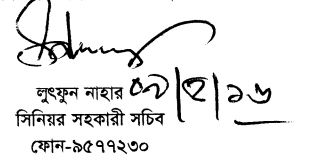 লুৎফুন নাহার ০৯/২/১৬
সিনিয়র সহকারী সচিব
ফোন-৯৫৭৭২৩০